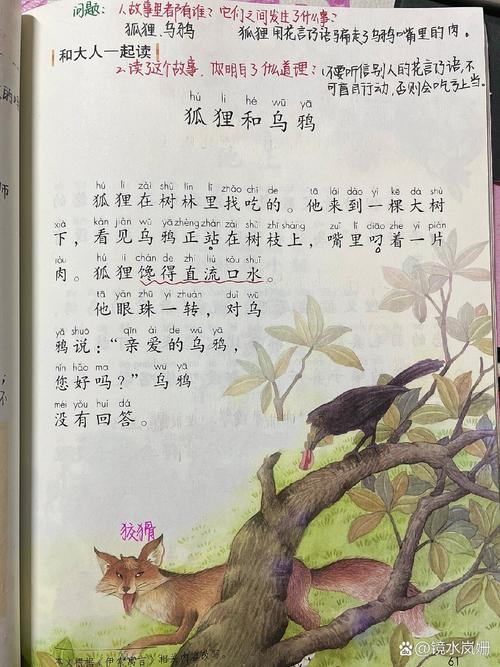 问题：1.故事里都有谁？它们之间发生了什么事？
狐狸.乌鸦 狐狸用花言巧语骗走了乌鸦嘴里的肉。
和大人一起读
2.读了这个故事，你明白了什么道理：不要听信别人的花言巧语,不
可盲目行动,否则会吃亏上当。
hú li hé wū yā
狐狸和乌鸦
hú li zài shù lín li zhǎo chī de tā lái dào yì kē dà shù
狐狸在树林里找吃的。他来到一棵大树
xià kàn jiàn wū yā zhèng zhàn zài shù zhī shàng zuǐ li diāo zhe yí piàn
下，看见乌鸦正站在树枝上，嘴里叼着一片
ròu hú li chán de zhí liú kǒu shuǐ
肉。狐狸馋得直流口水。
tā yǎn zhū yí zhuàn duì wū
他眼珠一转，对乌
yā shuō qīn ài de wū yā
鸦说：“亲爱的乌鸦，
nín hǎo ma wū yā
您好吗？”乌鸦
méi yǒu huí dá
没有回答。
狡猾
本文根据《伊索寓言》相关内容改写。
61
镜水岚姗